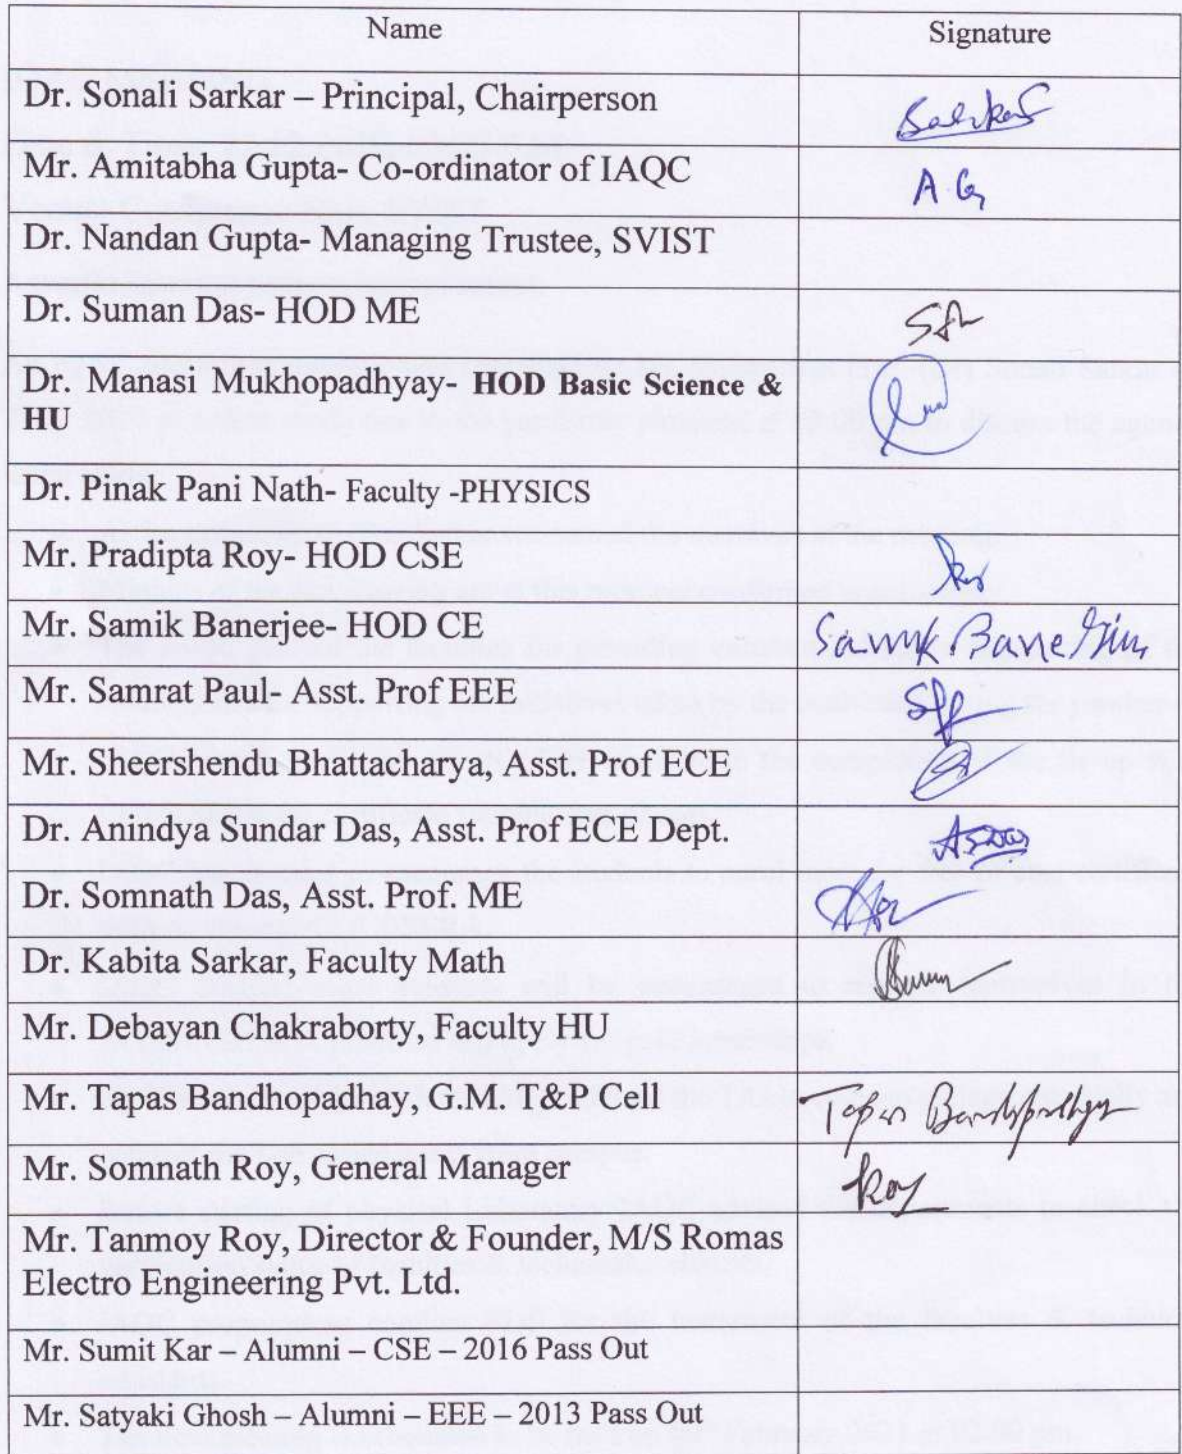 Name Signature
Dr. Sonali Sarkar – Principal, Chairperson
Mr. Amitabha Gupta- Co-ordinator of IAQC A G
Dr. Nandan Gupta- Managing Trustee, SVIST
Dr. Suman Das- HOD ME
Dr. Manasi Mukhopadhyay- HOD Basic Science &
HU
Dr. Pinak Pani Nath- Faculty -PHYSICS
Mr. Pradipta Roy- HOD CSE
Mr. Samik Banerjee- HOD CE Samik Banerjee
Mr. Samrat Paul- Asst. Prof EEE
Mr. Sheershendu Bhattacharya, Asst. Prof ECE
Dr. Anindya Sundar Das, Asst. Prof ECE Dept.
Dr. Somnath Das, Asst. Prof. ME
Dr. Kabita Sarkar, Faculty Math
Mr. Debayan Chakraborty, Faculty HU
Mr. Tapas Bandhopadhay, G.M. T&P Cell Tapas Bandyopadhyay
Mr. Somnath Roy, General Manager Roy
Mr. Tanmoy Roy, Director & Founder, M/S Romas
Electro Engineering Pvt. Ltd.
Mr. Sumit Kar – Alumni – CSE – 2016 Pass Out
Mr. Satyaki Ghosh – Alumni – EEE – 2013 Pass Out